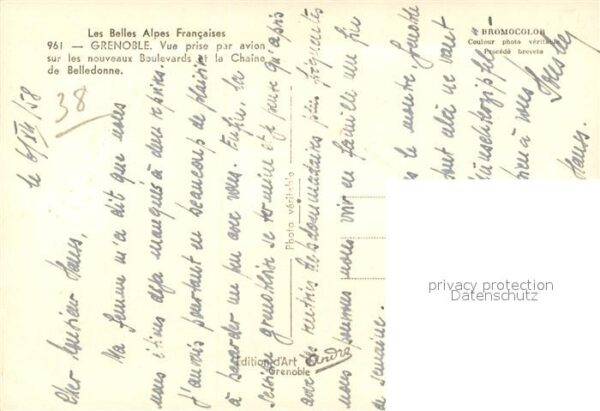 Les Belles Alpes Françaises
961 — GRENOBLE. Vue prise par avion
sur les nouveaux Boulevards et la Chaîne
de Belledonne.
BROMOCOLOR
Couleur photo véritable
Procédé breveté
Photo véritable
Edition d'Art André
Grenoble
38
le 6/XII/58
Cher Monsieur Hans,
Ma femme m'a dit que vous
nous étiez déjà manqués à deux reprises
J'aurais pourtant eu beaucoup de plaisir
à bavarder un peu avec vous. Enfin, la
Session grenobloise se termine et je pense qu'après
avec des rentrées hebdomadaires plus fréquentes
nous pourrons nous voir en famille une fin
de semaine.
le montre
tout cela ne vaut
à vous
Hans.
privacy protection
Datenschutz